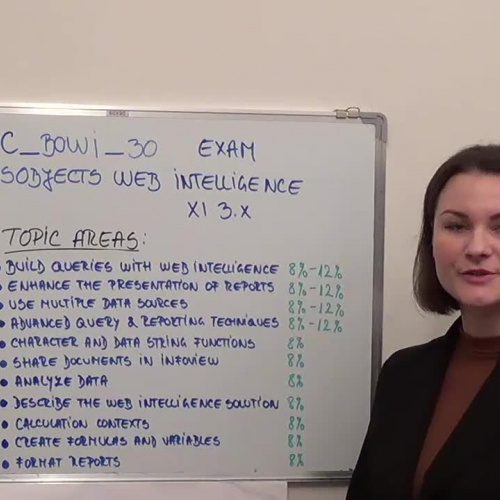 C_BOWI_30 EXAM
SOBJECTS WEB INTELLIGENCE
XI 3.X
TOPIC AREAS:
BUILD QUERIES WITH WEB INTELLIGENCE 8%-12%
• ENHANCE THE PRESENTATION OF REPORTS 8%-12%
• USE MULTIPLE DATA SOURCES 8%-12%
• ADVANCED QUERY & REPORTING TECHNIQUES 8%-12%
• CHARACTER AND DATA STRING FUNCTIONS 8%
• SHARE DOCUMENTS IN INFOVIEW 8%
• ANALYZE DATA 8%
• DESCRIBE THE WEB INTELLIGENCE SOLUTION 8%
• CALCULATION CONTEXTS 8%
• CREATE FORMULAS AND VARIABLES 8%
• FORMAT REPORTS 8%